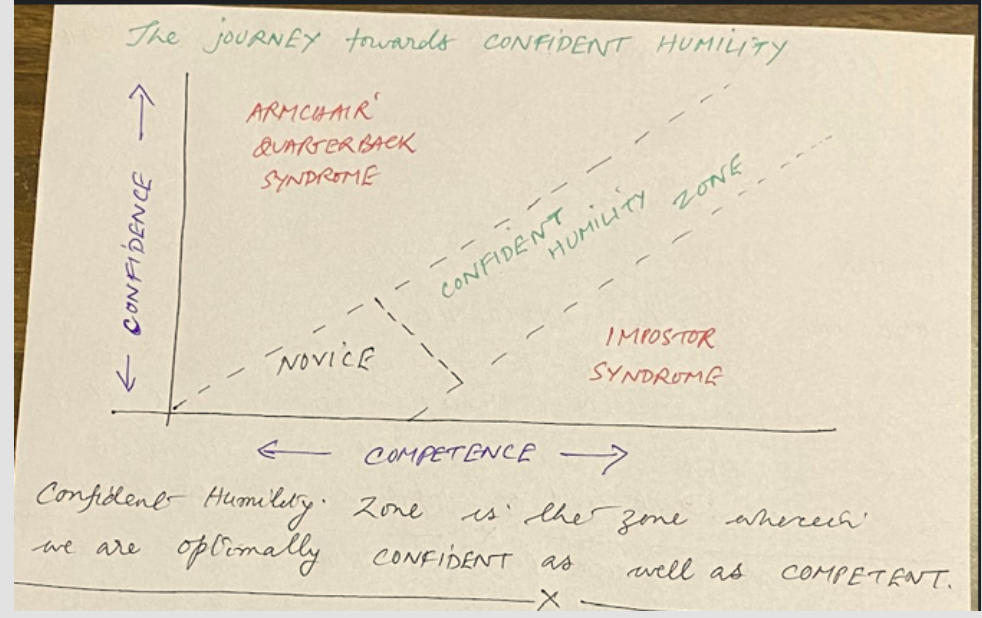 The JOURNEY towards CONFIDENT HUMILITY
ARMCHAIR
QUARTERBACK
SYNDROME
CONFIDENCE
CONFIDENT
HUMILITY ZONE
NOVICE
IMPOSTOR
SYNDROME
COMPETENCE
Confident Humility Zone is the zone wherein
we are optimally CONFIDENT as well as COMPETENT.
X